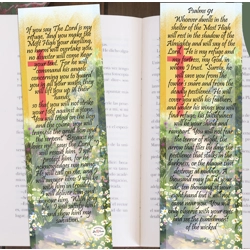 If you say "The Lord is my
refuge," and you make the
Most High your dwelling,
no harm will overtake you,
no disaster will come near
your tent. For he will
command his angels
concerning you to guard
you in all your ways;
they will lift you up in
their hands,
so that you will not strike
your foot against a stone.
You will tread on the lion
and the cobra; you will
trample the great lion and
the serpent. "Because he
loves me," says the Lord,
"I will rescue him; I will
protect him, for he
Psalms 91
Whoever dwells in the
shelter of the Most High
will rest in the shadow of the
Almighty. I will say of the
Lord, "He is my refuge and
my fortress, my God, in
whom I trust." Surely, he
will save you from the
fowler's snare and from the
deadly pestilence. He will
cover you with his feathers,
and under his wings you
will find refuge; his
faithfulness will be your
shield and rampart.
You will not fear the
terror of night, the
arrow that flies by day, the
pestilence that stalks in the
darkness, or the plague that
destroys at midday. A
thousand may fall at your
side, ten thousand at your
right hand, but it will not
come near you. You will
only observe with your eyes
and see the punishment
of the wicked